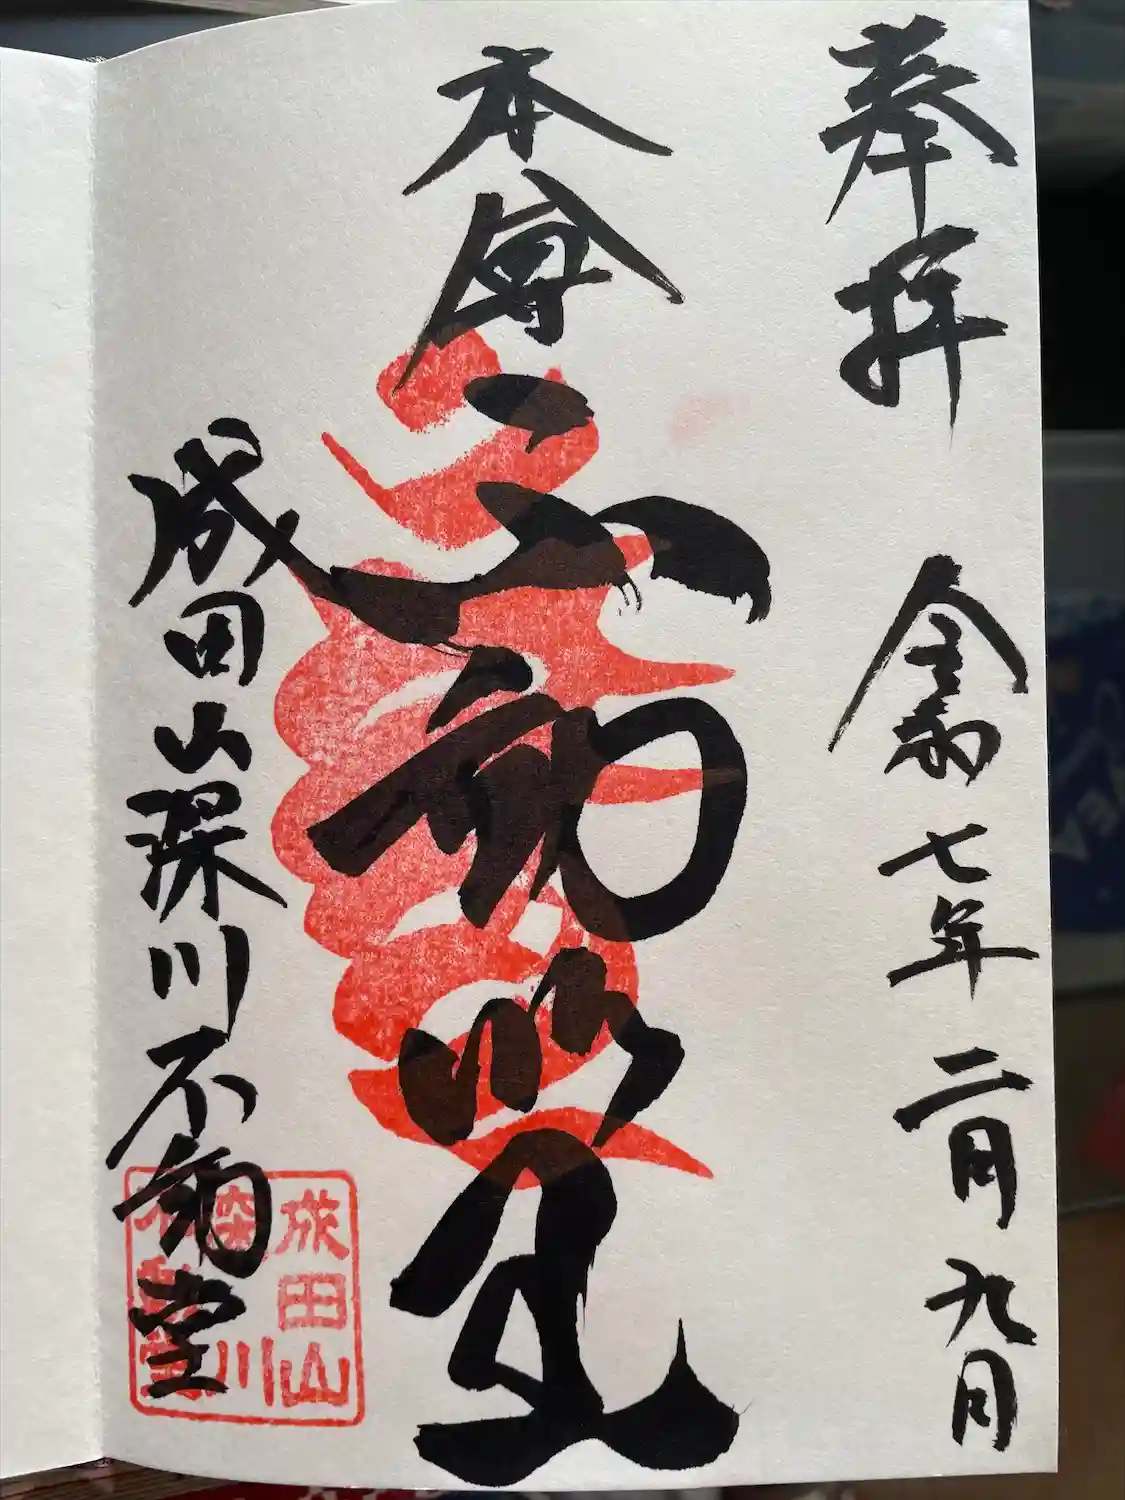 奉拝 令和七年二月九日
本尊
不動明王
成田山深川不動堂
成田山
深川
不動堂